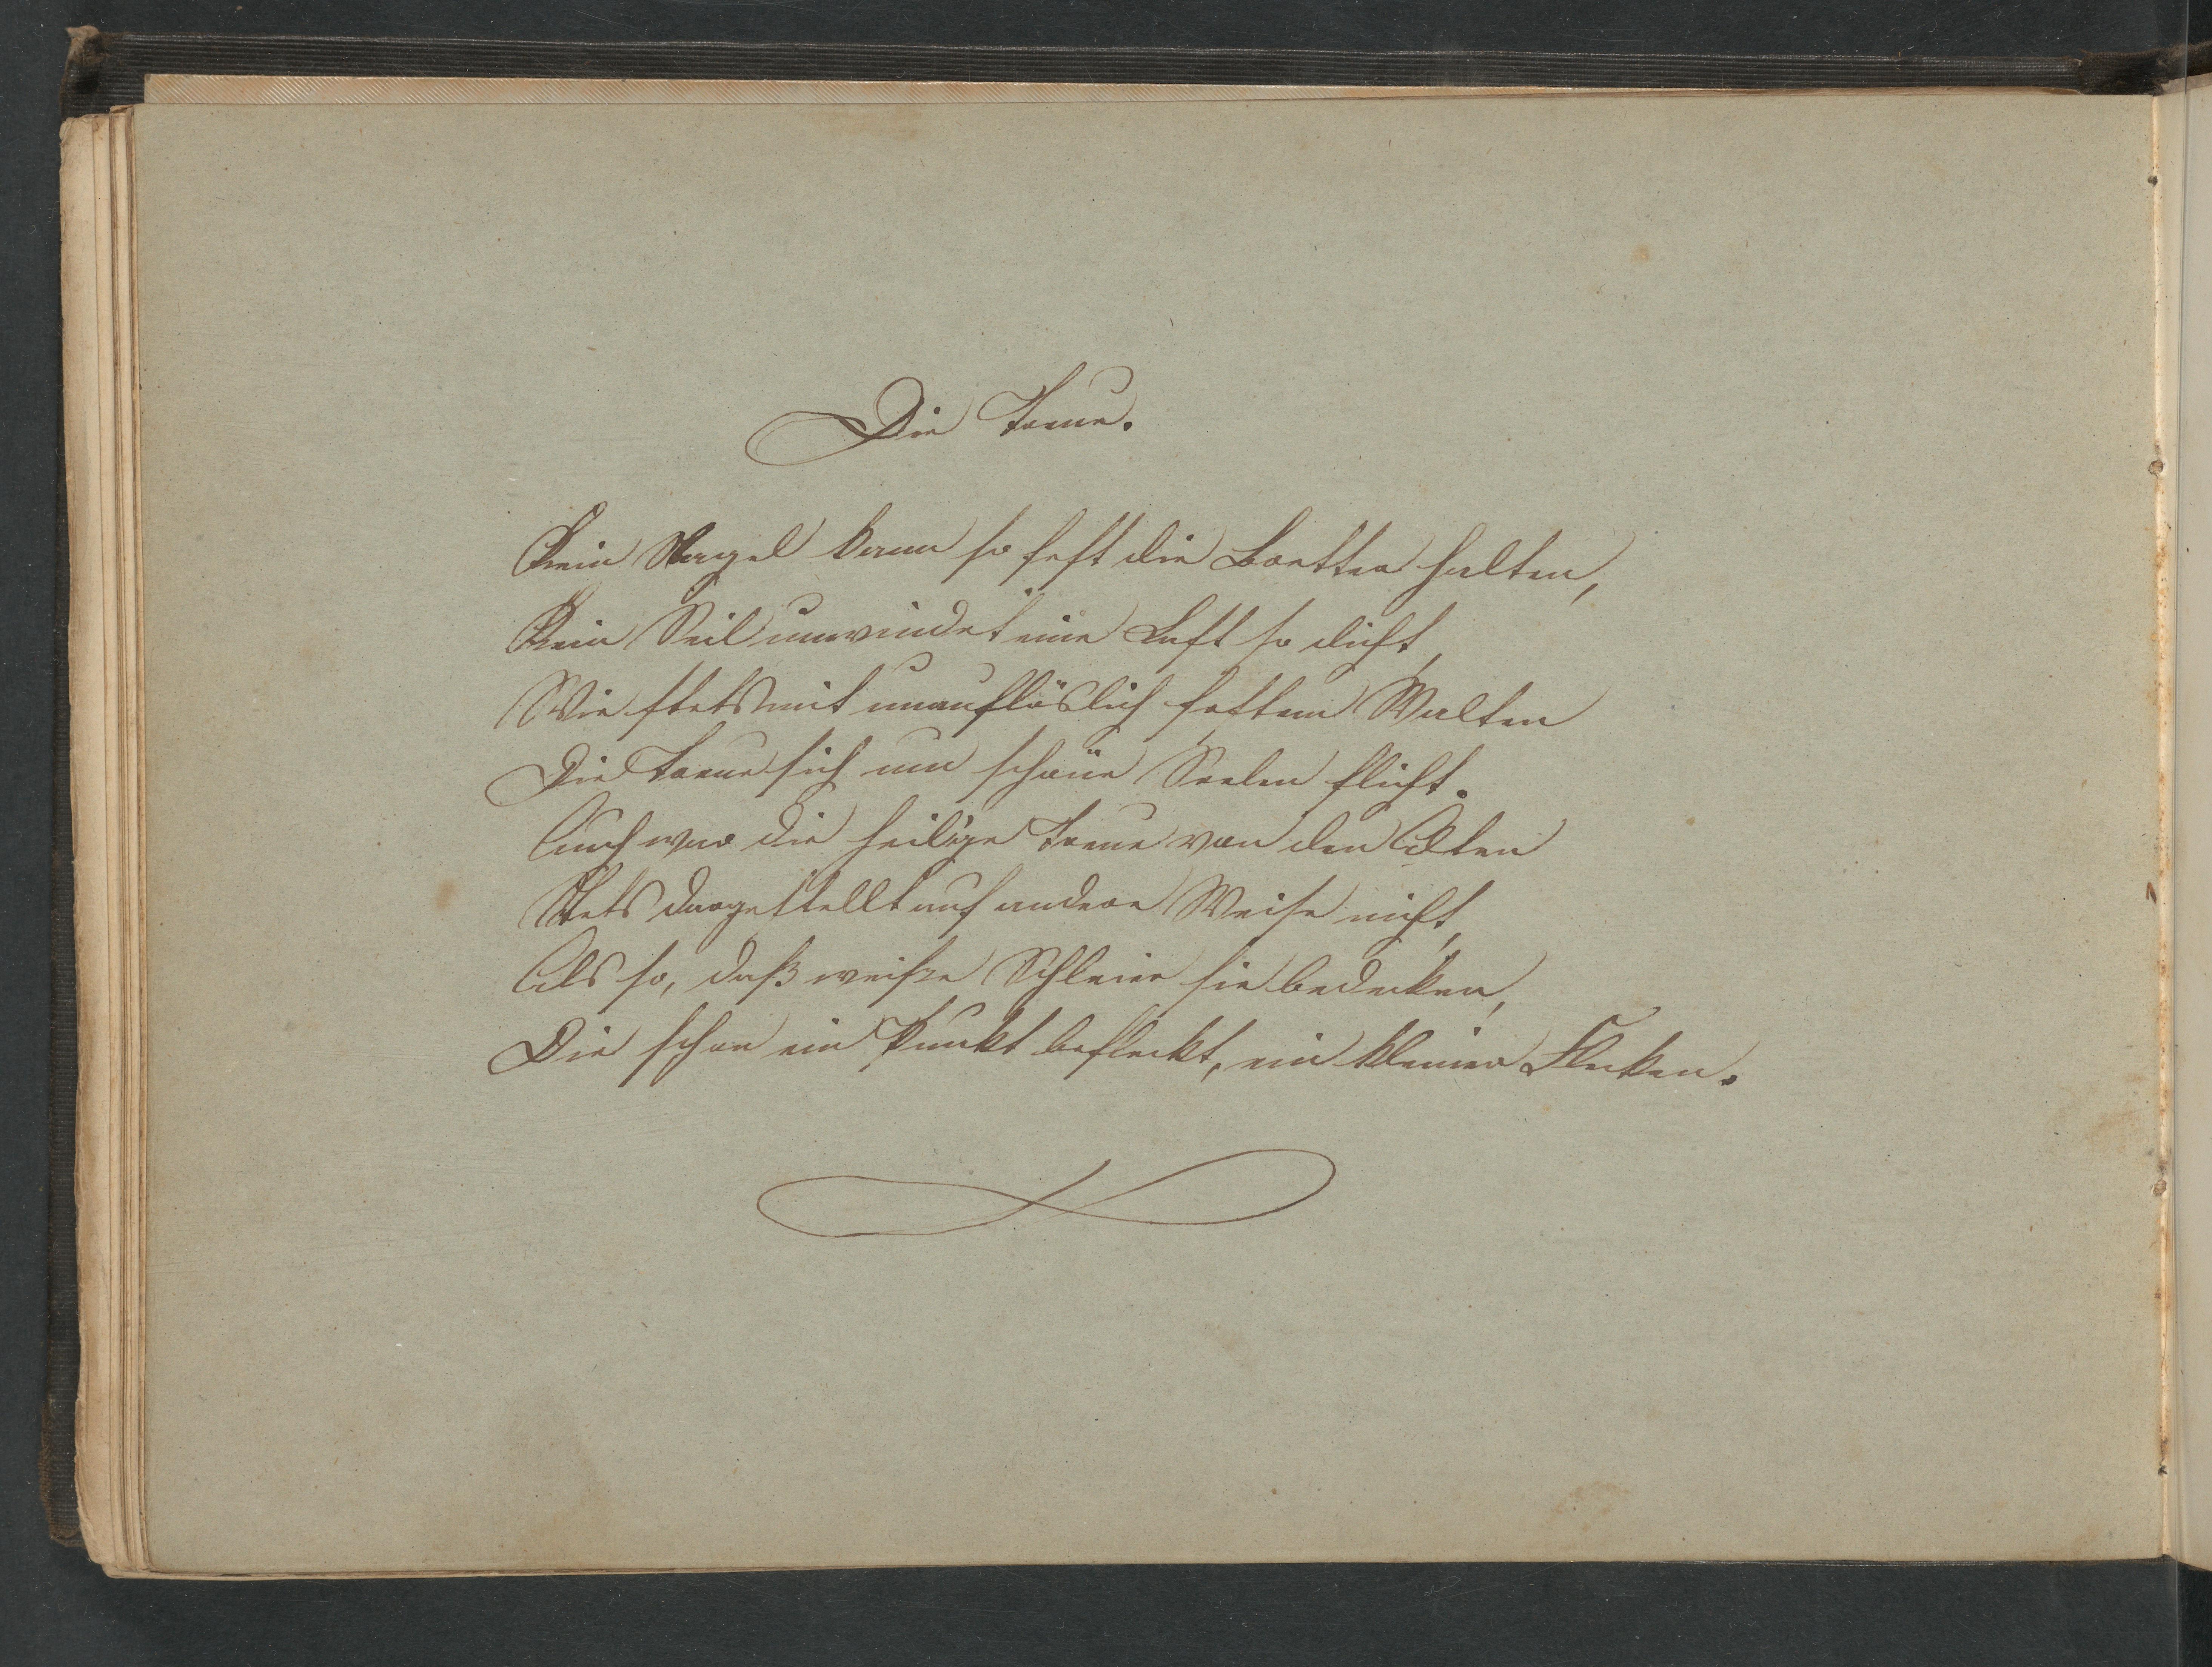 Die Treue.
Kein Nagel kann so fest die Bretter halten,
Kein Seil umwindet eine Last so dicht,
Wie stets mit unauflöslich festem Walten
Die Treue sich um schöne Seelen flicht.
Auch war die heilige Treue von den Alten
Stets dargestellt auf andere Weise nicht,
Als so, daß weiße Schleier sie bedecken,
Die schon ein Punkt befleckt, ein kleiner Flecken.